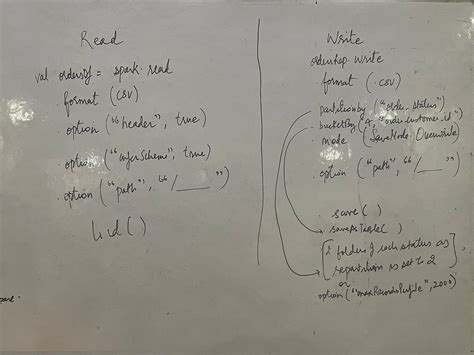 Read
val ordersDf = spark.read
.format (csv)
.option ("header", true)
.option ("inferSchema", true)
.option ("path", "/___")
Write
ordersRep.write
format (.csv)
partitionBy ("order_status")
bucketBy (4, "order_customer_id")
.mode (SaveMode.Overwrite)
.option ("path", "/___")
.save ()
.saveAsTable ()
2 folders of each status as
repartition is set to 2
or
option ("maxRecordsPerFile", 2000)